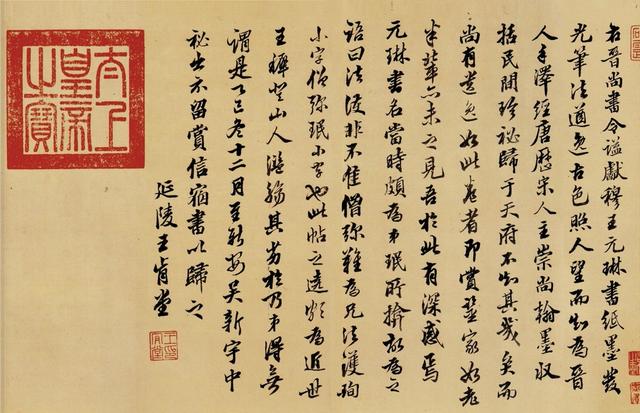 右晉尚書令諡獻穆王元琳書紙墨發
光筆法遒逸古色照人望而知為晉
人手澤經唐歷宋人主崇尚翰墨收
括民間珍秘歸于天府不知其幾矣而
尚有遺逸如此卷者即賞鑒家如老
米輩亦未之見吾於此有深感焉
元琳書名當時頗為弟珉所揜故為之
語曰法護非不佳僧彌難為兄法護珣
小字僧彌珉小字也此帖之為近世
王登山人其劣於乃弟得無
謂是乎己冬十二月至新安吳新宇中
秘出示留賞信宿書以歸之
延陵王肯堂
太上皇帝之寶